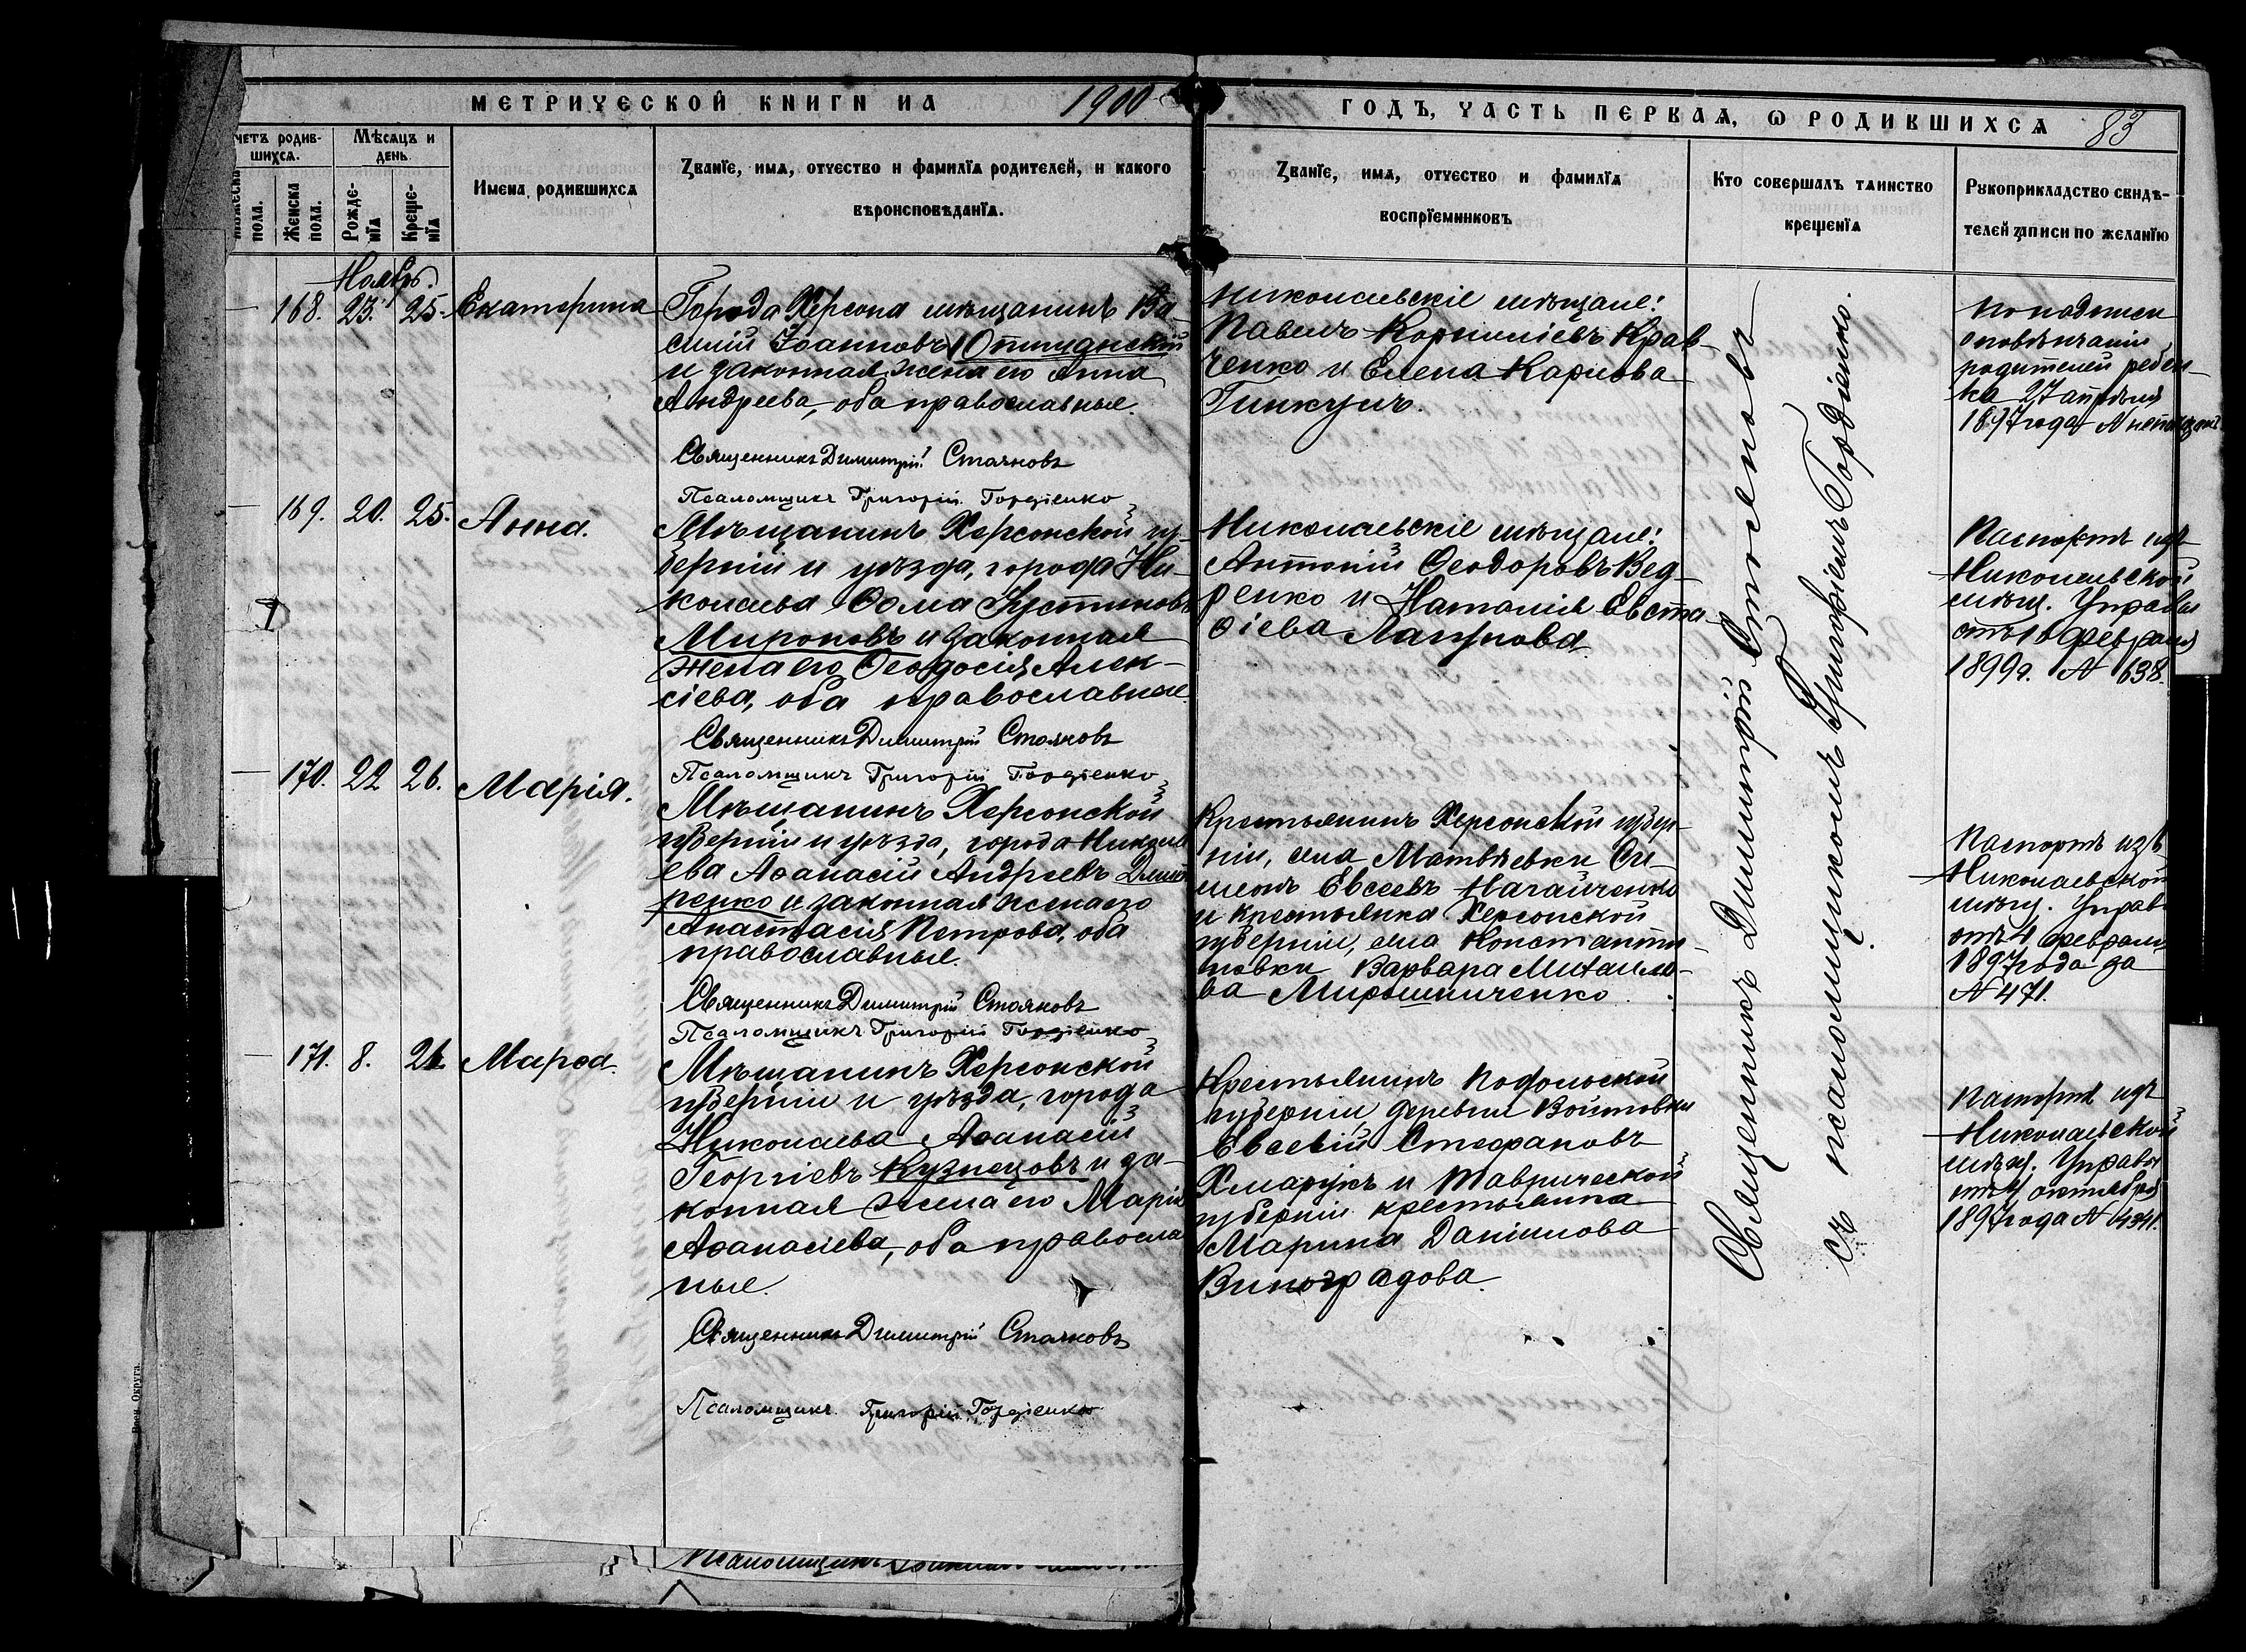 МЕТРИЧЕСКОЙ КНИГИ НА 1900
ГОДЪ, ЧАСТЬ ПЕРВАЯ, Ѡ РОДИВШИХСЯ 83
четъ родив-
шихся.
Мѣсяцъ и
день
пола.
Женска
пола.
Рожде-
нїя
Креще-
нїя
Имена родившихся
Званїе, имя, отчество и фамилїя родителей, и какого
вѣроисповѣданїя.
Званїе, имя, отчество и фамилїя
воспрїемниковъ
Кто совершалъ таинство
крещенїя
Рукоприкладство свидѣ-
телей записи по желанїю
Ноябрь.
— 168. 23. 25. Екатерина
Города Херсона мѣщанинъ Ва-
силій Іоанновъ
и законная жена его Анна
Андреева, оба православные.
Священникъ Димитрій Стояновъ
Псаломщикъ Григорій Гордіенко
Николаевскіе мѣщане:
Павелъ Корниліевъ Крав-
ченко и Елена Карпова
Гинкулъ.
родителей ребен-
ка 27 апрѣля
1897 года
— 169. 20. 25. Анна.
Мѣщанинъ Херсонской гу-
берніи и уѣзда, города Ни-
колаева Ѳома Іустиновъ
Мироновъ и законная
жена его Ѳеодосія Алек-
сіева, оба православные.
Священникъ Димитрій Стояновъ
Псаломщикъ Григорій Гордіенко
Николаевскіе мѣщане:
Антоній Ѳеодоровъ Вед-
ренко и Наталія Евста-
ѳіева
Паспортъ изъ
Николаевской
мѣщ. Управы
отъ 16 февраля
1899 г. № 638.
— 170. 22 26. Марія.
Мѣщанинъ Херсонской
губерніи и уѣзда, города Никола
ева Аѳанасій Андреевъ
ренко и законная жена его
Анастасія Петрова, оба
православные.
Священникъ Димитрій Стояновъ
Псаломщикъ Григорій Гордіенко
Крестьянинъ Херсонской губер-
ніи, села Матвѣевки Си-
меонъ Евсеевъ Нагайченко
и крестьянка Херсонской
губерніи, села Константи-
новки Варвара Михаило-
ва Мирошниченко.
Паспортъ изъ
Николаевской
мѣщ. Управ.
отъ 4 февраля
1897 года за
№ 471.
— 171. 8. 26. Марѳа.
Мѣщанинъ Херсонской
губерніи и уѣзда, города
Николаева Аѳанасій
Георгіевъ Кузнецовъ и за-
конная жена его Марія
Аѳанасіева, оба правосла
ные.
Священникъ Димитрій Стояновъ
Псаломщикъ Григорій Гордіенко
Крестьянинъ Подольской
губерніи, деревни Войтовки
Евсевій Стефановъ
Хмарукъ и Таврической
губерніи крестьянка
Марина Даніилова
Виноградова.
Паспортъ изъ
Николаевской
мѣщ. Управы
октября
1897 года №
Священникъ Димитрій Стояновъ
съ псаломщикомъ Григоріемъ Гордіенко.
Воен. Округа.
Псаломщикъ